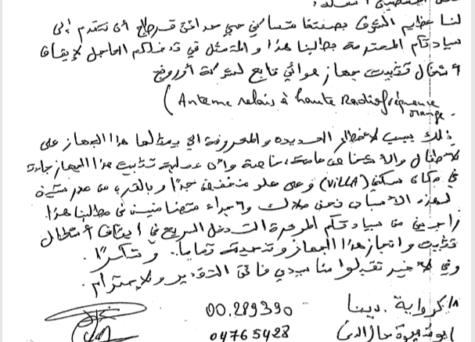 لنا عظيم الشرف بصفتنا متساكني حي حدائق قرطاج أن نتقدم إلى
سيادتكم المحترمة بطلبنا هذا والمتمثل في تدخلكم العاجل لإيقاف
أشغال تثبيت جهاز هوائي تابع لشركة أورونج
(Antenne relais à haute Radiofréquence
orange.
ذلك بسبب الأخطار العديدة والمعروفة التي يمثلها هذا الجهاز على
الأطفال والأشخاص عامة، خاصة وأن عملية تثبيت هذا الجهاز جاءت
في مكان سكني (VILLA) وعلى علو منخفض جدا وبالقرب من مدرستين
لهذه الأسباب نحن ملاك وأجراء متضامنين في مطلبنا هذا.
راجين من سيادتكم الموقرة التدخل السريع في إيقاف أشغال
تثبيت وإنجاز هذا الجهاز وتنحيته تماما. وشكرا.
وفي الأخير تقبلوا منا سيدي فائق التقدير والاحترام.
دينا 00.289390
04765428